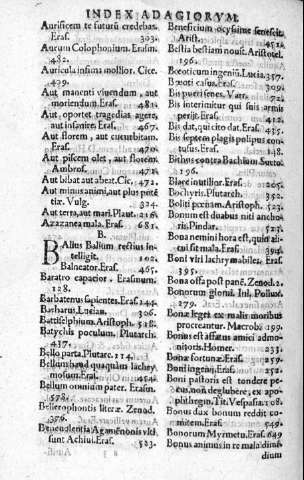 INDEX ADAGIORVM
Auriscem te futurū credebas.
Eras. 303.
Aurum Colophonium. Erasm.
482.
Auricula infima mollior. Cice.
439.
Aut manenti viuendum, aut
moriendum. Eras. 481.
Aut, oportet tragœdias agere,
aut insanire. Eras. 667.
Aut florem, aut cucurbitam.
Eras. 470.
Aut piscem olet, aut florem.
Ambros. 471.
Aut bibat aut abeat. Cic. 472.
Aut minus animi, aut plus potē
tiæ. Vulg. 324.
Aut terra, aut mari. Plaut. 216.
Azazanea mala. Eras. 681.
B.
BAlius Balium rectius in
telligit. 102.
Balneator. Eras. 465.
Baratro capacior. Erasmum.
128.
Barbatenus sapientes. Eras. 144.
Barbarus. Lucian. 306.
Battiselphium. Aristoph. 518.
Batychis poculum. Plutarch.
437.
Bello parta. Plutarc. 114.
Bellum haud quaquam lachry
mosum. Eras. 454.
Bellum omnium pater. Erasm.
578.
Bellerophontis literæ. Zenod.
376.
Beneuolentia Agamēnonis vlti
sunt Achiui. Eras. 583.
Beneficium ocyssime senescit.
Arist. 451.
Bestia bestiam nouit. Aristotel.
196.
Bœoticum ingeniū. Lucia. 357.
Bœoti casus. Eras. 391.
Bis pueri senes. Varr. 72.
Bis interimitur qui suis armis
perijt. Eras. 412.
Bis dat, qui cito dat. Eras. 435.
Bis septem plagis polipus con
tusus. Eras. 148.
Bithus contra Bachium. Sueto.
196.
Blace inutilior. Eras. 205.
Bochyris. Plutarch. 352.
Boliti pœnam. Aristoph. 523.
Bonum est duabus niti ancho-
ris. Pindar. 523.
Bona nemini hora est, quin ali-
cui sit mala. Eras. 380.
Boni viri lachrymabiles. Eras.
395.
Bona offa post panē. Zenod. 2.
Bonorum gloria. Iul. Pollux.
279.
Bonæ leges ex malis moribus
procreantur. Macrob. 199.
Bonus est affatus amici admo-
nitoris. Homer. 233.
Bonæ fortunæ. Eras. 259.
Boni ingenij. Eras. 152.
Boni pastoris est tondere pe-
cus, nō deglubere, ex apo-
phthegm. Tit. Vespasia. 108.
Bonus dux bonum reddit co-
mitem. Eras. 549.
Bonorum Myrmeta. Eras. 649.
Bonus animus in re mala dimi
dium